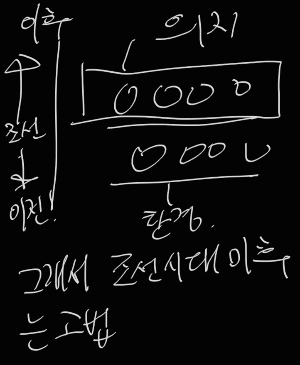 이후
의지
조선
이전!
환경.
그래서 조선시대 이후
는 고법